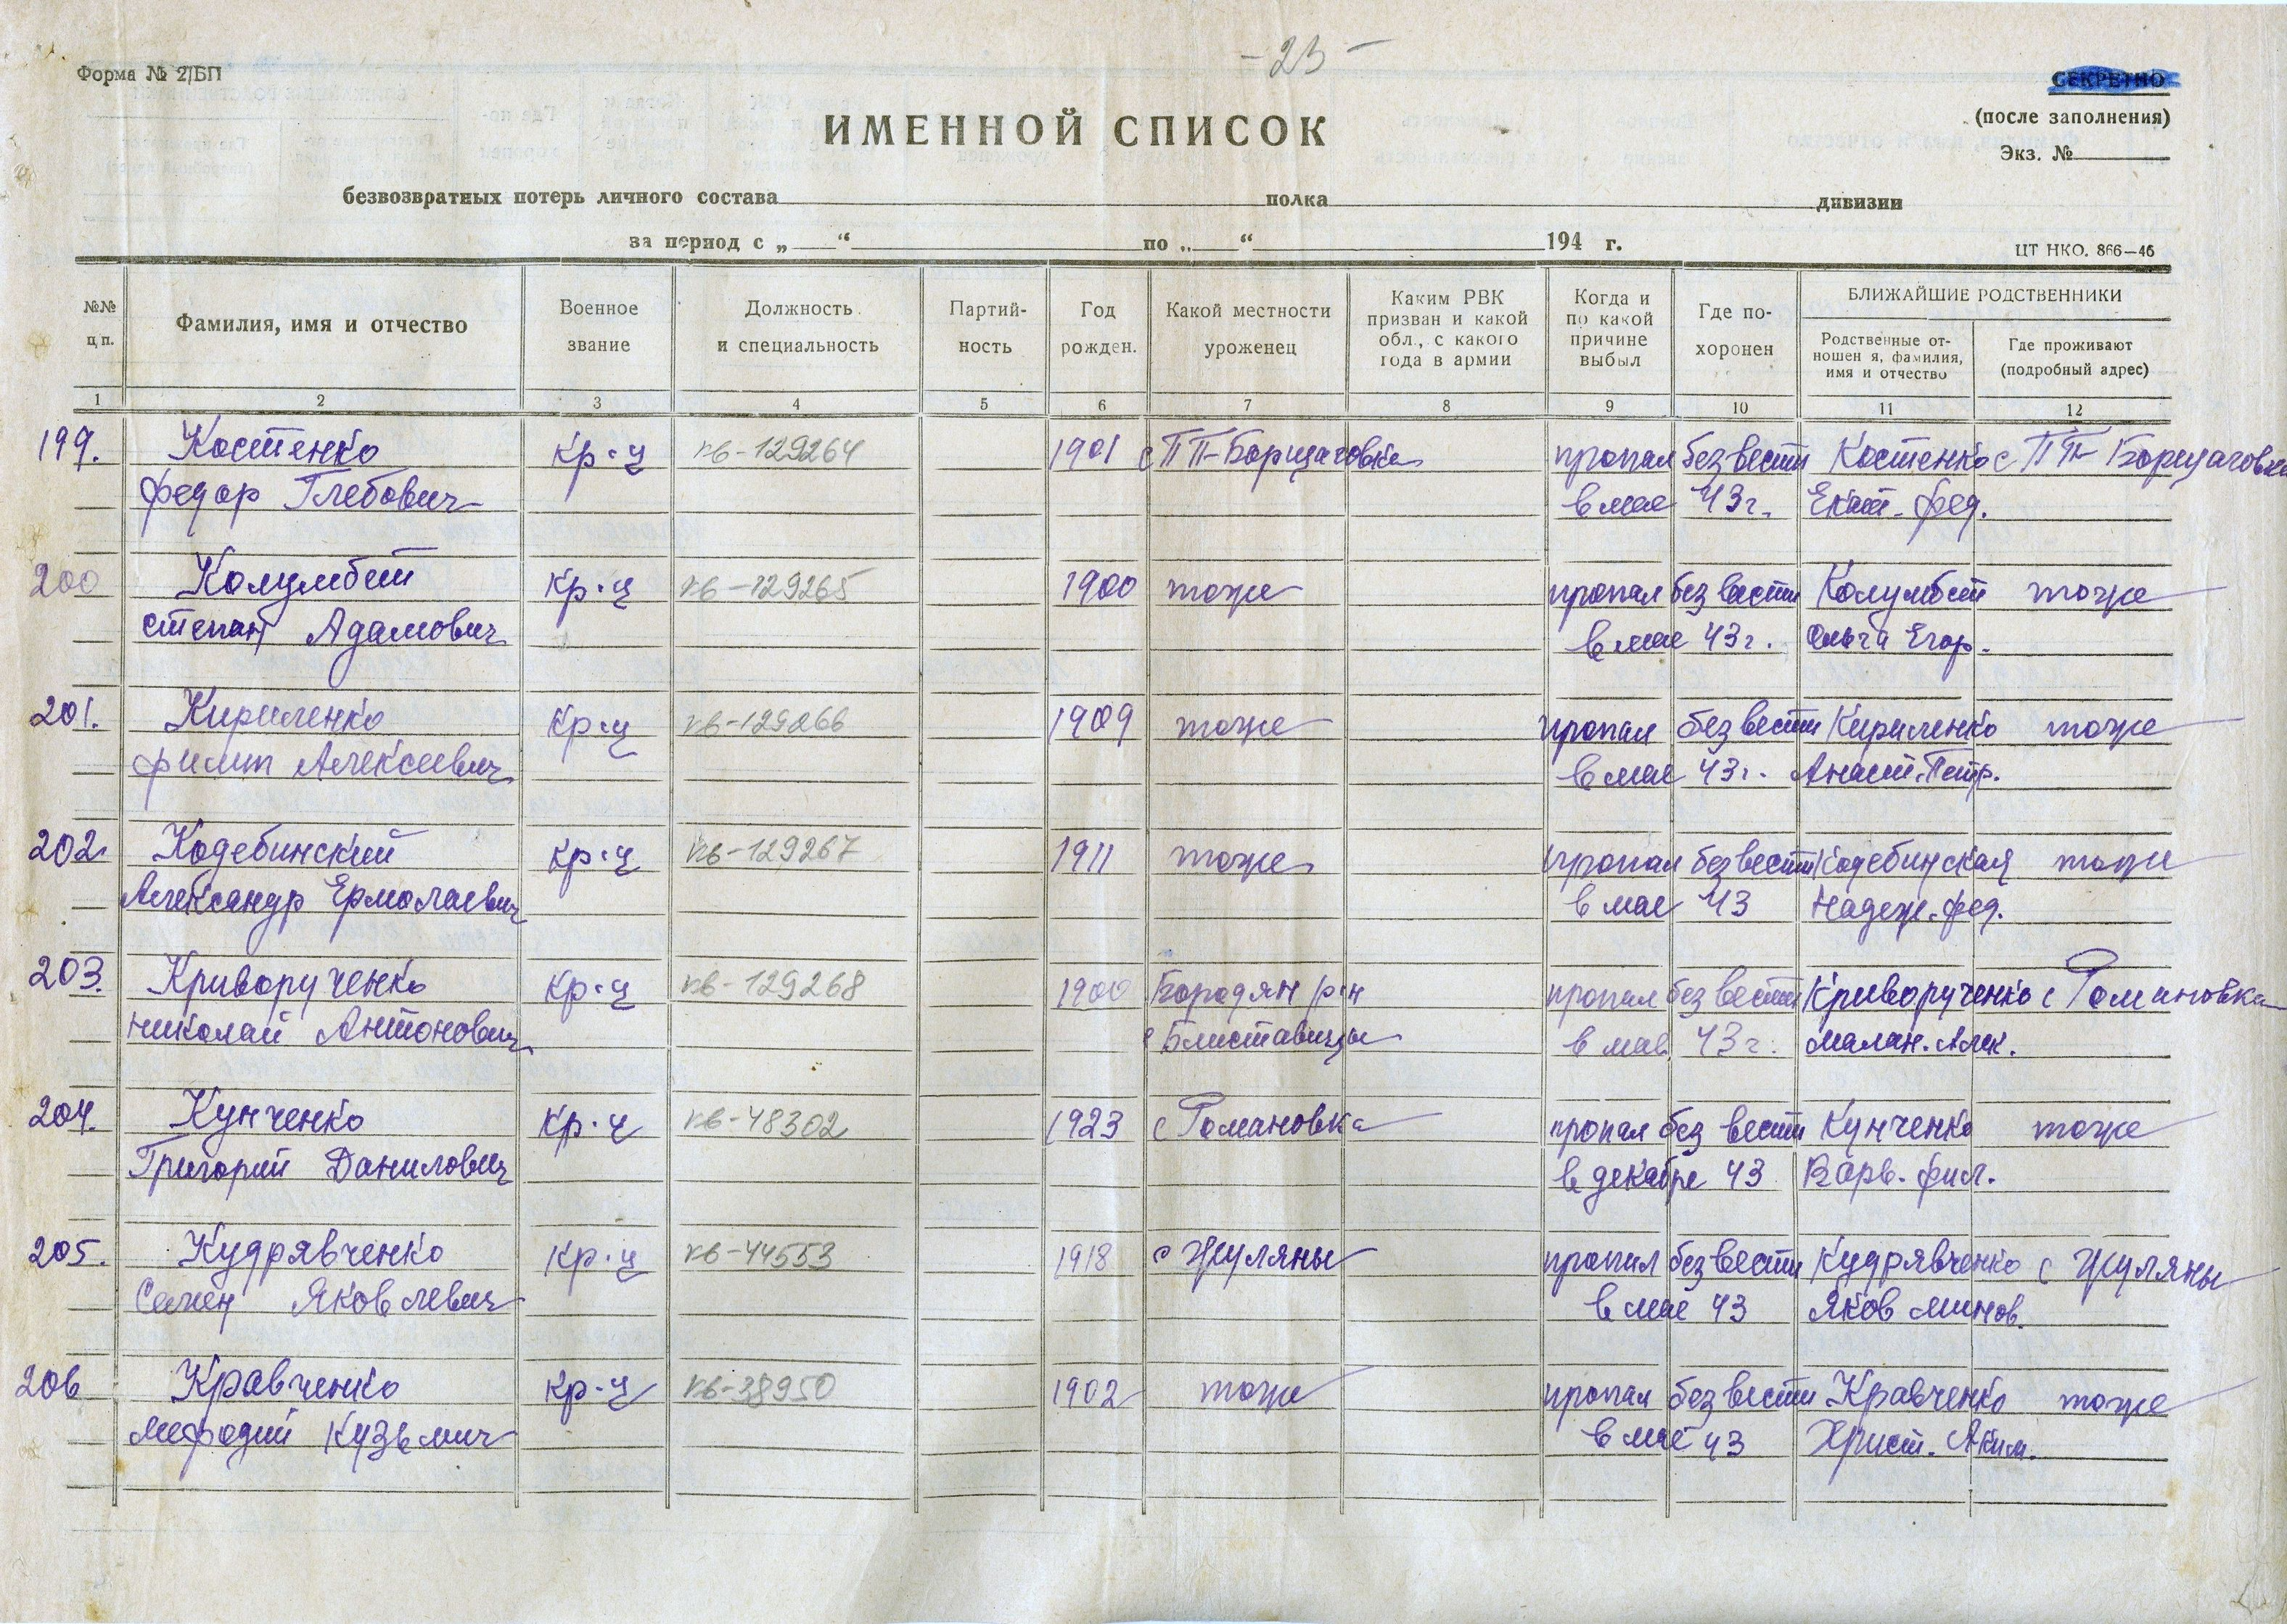 -25-
Форма № 2/БП
СЕКРЕТНО
(после заполнения)
Экз. №
ИМЕННОЙ СПИСОК
безвозвратных потерь личного состава полка дивизии
за период с „ “ по „ “ 194 г.
ЦТ НКО. 866—46
№№ п.п. Фамилия, имя и отчество Военное звание Должность и специальность Партийность Год рожден. Какой местности уроженец Каким РВК призван и какой обл., с какого года в армии Когда и по какой причине выбыл Где похоронен БЛИЖАЙШИЕ РОДСТВЕННИКИ
Родственные отношен я, фамилия, имя и отчество Где проживают (подробный адрес)
1 2 3 4 5 6 7 8 9 10 11 12
199. Костенко кр-ц кв-129264 1901 с ПП-Борщаговка пропал без вести Костенко с ПП Борщаговка
федор Глебович в мае 43г. Екат. фед.
200 Колумбет кр-ц кв-129265 1900 тоже пропал без вести Колумбет тоже
степан Адамович в мае 43г. Ольга Егор.
201. Кириленко кр-ц кв-129266 1909 тоже пропал без вести Кириленко тоже
филип Алексеевич в мае 43г. Анаст. Петр.
202. Кодебинский кр-ц кв-129267 1911 тоже пропал без вести Кодебинская тоже
Александр Ермолаевич в мае 43 Надеж. фед.
203. Криворученко кр-ц кв-129268 1900 Бородян р-н пропал без вести Криворученко с Романовка
николай Антонович с Блиставицы в мае 43г. Малан. Алек.
204. Кунченко кр-ц кв-48302 1923 с Романовка пропал без вести Кунченко тоже
Григорий Данилович в декабре 43 Варв. фил.
205. Кудрявченко кр-ц кв-44553 1918 с Жуляны пропал без вести Кудрявченко с Жуляны
Семен Яковлевич в мае 43 Яков минов.
206 Кравченко кр-ц кв-38950 1902 тоже пропал без вести Кравченко тоже
мефодий Кузьмич в мае 43 Христ. Аким.